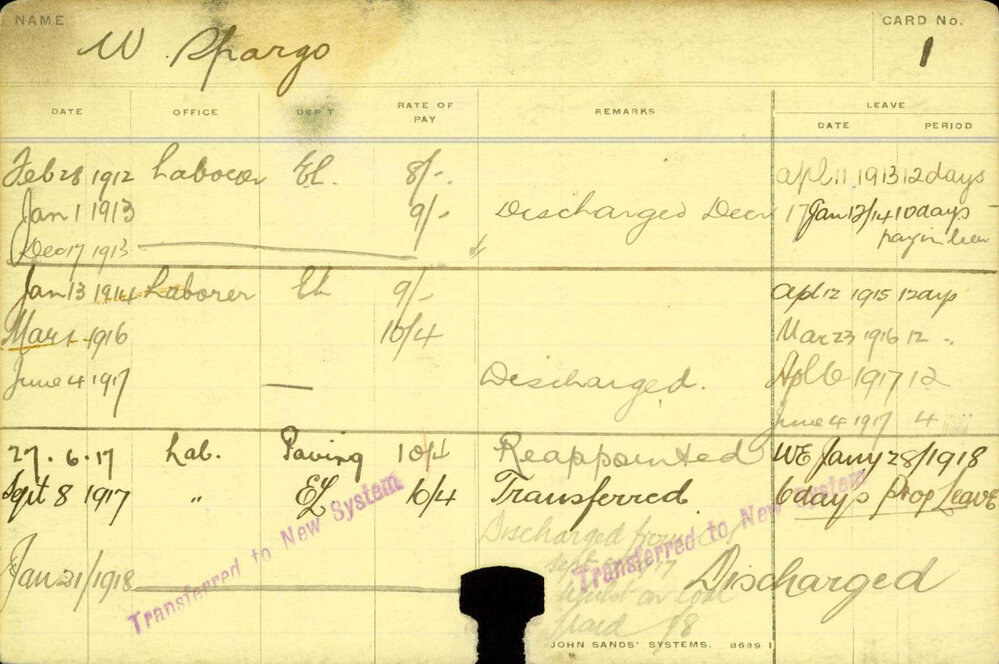 NAME W. Spargo CARD No. 1
DATE OFFICE DEP'T RATE OF PAY REMARKS LEAVE
DATE PERIOD
Feb 28 1912 Laborer El. 8/-. Apl 11 1913 12 days
Jan 1 1913 9/- Discharged Decr 17 Jan 13/14 10 days
Dec 17 1913 pay in lieu
Jan 13 1914 Laborer El 9/- Apl 12 1915 12 days
Mar 1916 10/4 Mar 23 1916 12 "
June 4 1917 — Discharged. Apl 6 1917 12
June 4 1917 4
27.6.17 Lab. Paving 10/4 Reappointed WE Jany 28/1918
Sept 8 1917 " EL 10/4 Transferred. 6 days Prop Leave
Transferred to New System
Transferred to New System
Discharged from
Sept 17
Jan 21/1918 Discharged
whilst on
JOHN SANDS' SYSTEMS. 8689